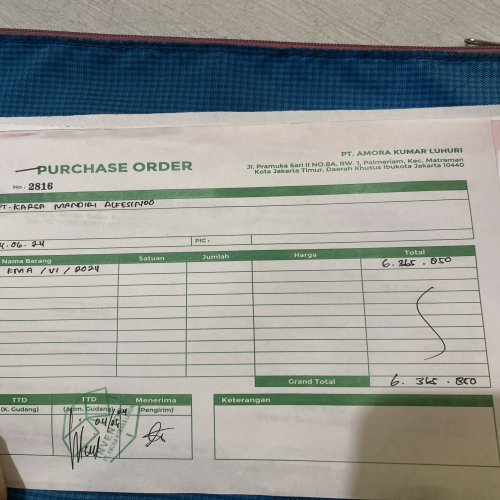 PURCHASE ORDER
No : 2816
PT. AMORA KUMAR LUHURI
Jl. Pramuka Sari II NO.8A, RW. 1, Palmeriam, Kec. Matraman
Kota Jakarta Timur, Daerah Khusus Ibukota Jakarta 10440
PT. KARSA MANDIRI ALKESINDO
.06.24
PIC :
Nama Barang Satuan Jumlah Harga Total
KMA / VI / 2024 6.365.850
Grand Total 6.365.850
TTD TTD Menerima
(K. Gudang) (Adm. Gudang) (Pengirim)
Keterangan
04/06